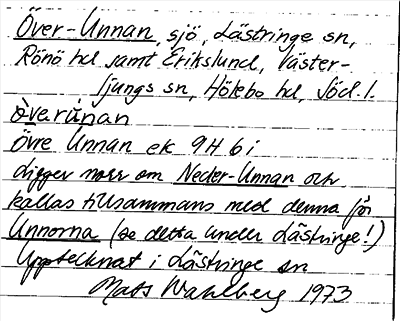 Över-Unnan, sjö, Lästringe sn,
Rönö hd samt Erikslund, Väster-
ljungs sn, Hölebo hd, Södl.l.
òverúnan
Övre Unnan ek 9H6i
ligger norr om Neder-Unnan och
kallas tillsammans med denna för
Unnorna (se detta under Lästringe!)
Upptecknat i Lästringe sn
Mats Wahlberg 1973